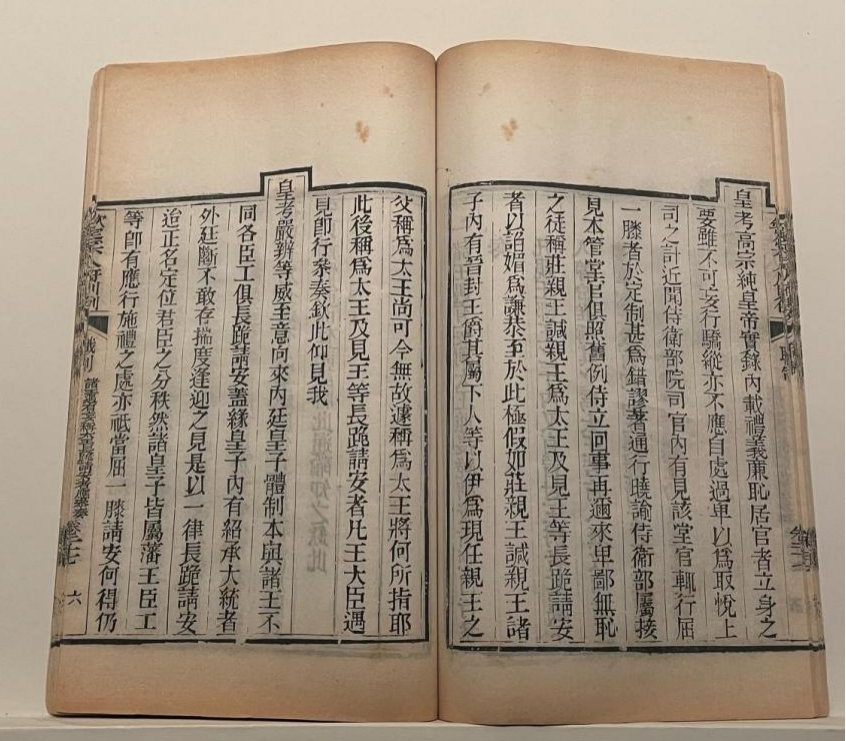 皇考高宗純皇帝實錄內載禮義廉恥居官者立身之
要雖不可妄行驕縱亦不應自處過卑以為取悅上
司之計近聞侍衛部院司官內有見該堂官輒行屈
一膝者於定制甚為錯謬著通行曉諭侍衛部屬接
見本管堂官俱照舊例侍立回事再邇來卑鄙無恥
之徒稱莊親王諴親王為太王及見王等長跪請安
者以諂媚為謙恭至於此極假如莊親王諴親王諸
子內有晉封王爵其屬下人等以伊為現任親王之
父稱為太王尚可今無故遽稱為太王將何所指耶
此後稱為太王及見王等長跪請安者凡王大臣遇
見即行叅奏欽此仰見我
皇考嚴辨等威至意向來內廷皇子體制本與諸王不
同各臣工俱長跪請安蓋緣皇子內有紹承大統者
外廷斷不敢存揣度逢迎之見是以一律長跪請安
迨正名定位君臣之分秩然諸皇子皆屬藩王臣工
等即有應行施禮之處亦祗當屈一膝請安何得仍
六